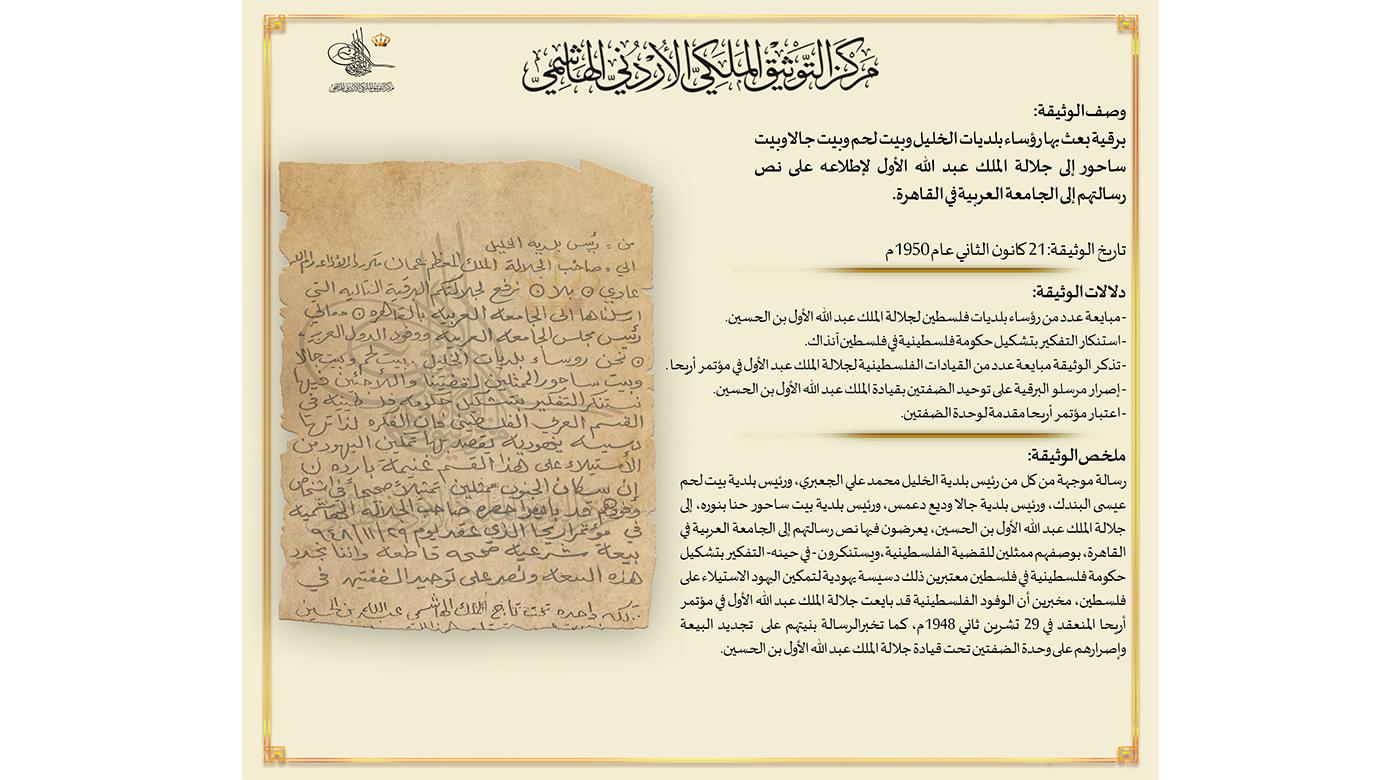 مركز التوثيق الملكي الأردني الهاشمي
مركز التوثيق الملكي الأردني الهاشمي
وصف الوثيقة:
برقية بعث بها رؤساء بلديات الخليل وبيت لحم وبيت جالا وبيت
ساحور إلى جلالة الملك عبد الله الأول لإطلاعه على نص
رسالتهم إلى الجامعة العربية في القاهرة.
تاريخ الوثيقة: 21 كانون الثاني عام 1950م
دلالات الوثيقة:
- مبايعة عدد من رؤساء بلديات فلسطين لجلالة الملك عبد الله الأول بن الحسين.
- استنكار التفكير بتشكيل حكومة فلسطينية في فلسطين آنذاك.
- تذكر الوثيقة مبايعة عدد من القيادات الفلسطينية لجلالة الملك عبد الأول في مؤتمر أريحا.
- إصرار مرسلو البرقية على توحيد الضفتين بقيادة الملك عبد الله الأول بن الحسين.
- اعتبار مؤتمر أريحا مقدمة لوحدة الضفتين.
ملخص الوثيقة:
رسالة موجهة من كل من رئيس بلدية الخليل محمد علي الجعبري، ورئيس بلدية بيت لحم
عيسى البندك، ورئيس بلدية جالا وديع دعمس، ورئيس بلدية بيت ساحور حنا بنوره، إلى
جلالة الملك عبد الله الأول بن الحسين، يعرضون فيها نص رسالتهم إلى الجامعة العربية في
القاهرة، بوصفهم ممثلين للقضية الفلسطينية،ويستنكرون -في حينه- التفكير بتشكيل
حكومة فلسطينية في فلسطين معتبرين ذلك دسيسة يهودية لتمكين اليهود الاستيلاء على
فلسطين، مخبرين أن الوفود الفلسطينية قد بايعت جلالة الملك عبد الله الأول في مؤتمر
أريحا المنعقد في 29 تشرين ثاني 1948م، كما تخبر الرسالة بنيتهم على تجديد البيعة
وإصرارهم على وحدة الضفتين تحت قيادة جلالة الملك عبد الله الأول بن الحسين.
من = رئيس بلدية الخليل
الى = صاحب الجلالة الملك المعظم عمان
عادي ⊙ بلا ⊙ نرفع لجلالتكم البرقية التالية التي
ارسلناها الى الجامعة العربية بالقاهره ⊙ معالي
رئيس مجلس الجامعة العربية ووفود الدول العربية
⊙ نحن روساء بلديات الخليل وبيت لحم وبيت جالا
وبيت ساحور الممثلين لقضيتنا واللاجئين فيها
نستنكر التفكير بتشكيل حكومة فلسطينية في
القسم العربي الفلسطيني فان الفكره لذا نراها
دسيسة يهودية يقصد بها تمكين اليهود من
الأستيلاء على هذا القسم غنيمة بارده ن
إن سكان الجنوب ممثلين تمثيلاً صحيحاً في اشخاص
وفودهم قد بايعوا حضره صاحب الجلالة الهاشمية
في مؤتمر اريحا الذي عقد يوم ٩٤٨/١١/٢٩
بيعة شرعية صحيحه قاطعه واننا نجدد
هذه البيعه ونصر على توحيد الضفتين في
مملكه واحده تحت تاج الملك الهاشمي عبدالله بن الحسين